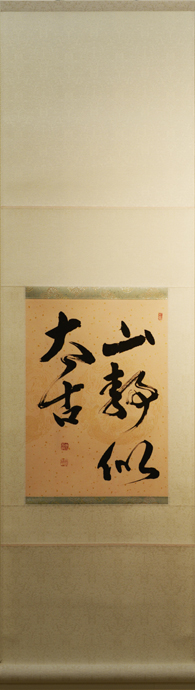 山靜似
太古